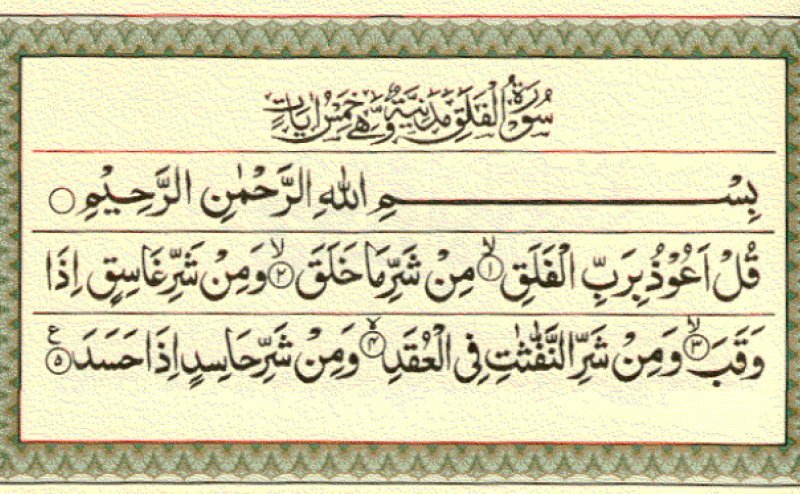 سُوْرَةُ الْفَلَقِ مَدَنِيَّةٌ وَّهِيَ خَمْسُ اٰيَاتٍ
بِسْمِ اللّٰهِ الرَّحْمٰنِ الرَّحِيْمِ ○
قُلْ اَعُوْذُ بِرَبِّ الْفَلَقِ ۙ﴿۱﴾ مِنْ شَرِّ مَا خَلَقَ ۙ﴿۲﴾ وَمِنْ شَرِّ غَاسِقٍ اِذَا
وَقَبَ ۙ﴿۳﴾ وَمِنْ شَرِّ النَّفّٰثٰتِ فِی الْعُقَدِ ۙ﴿۴﴾ وَمِنْ شَرِّ حَاسِدٍ اِذَا حَسَدَ ﴿۵﴾ ع